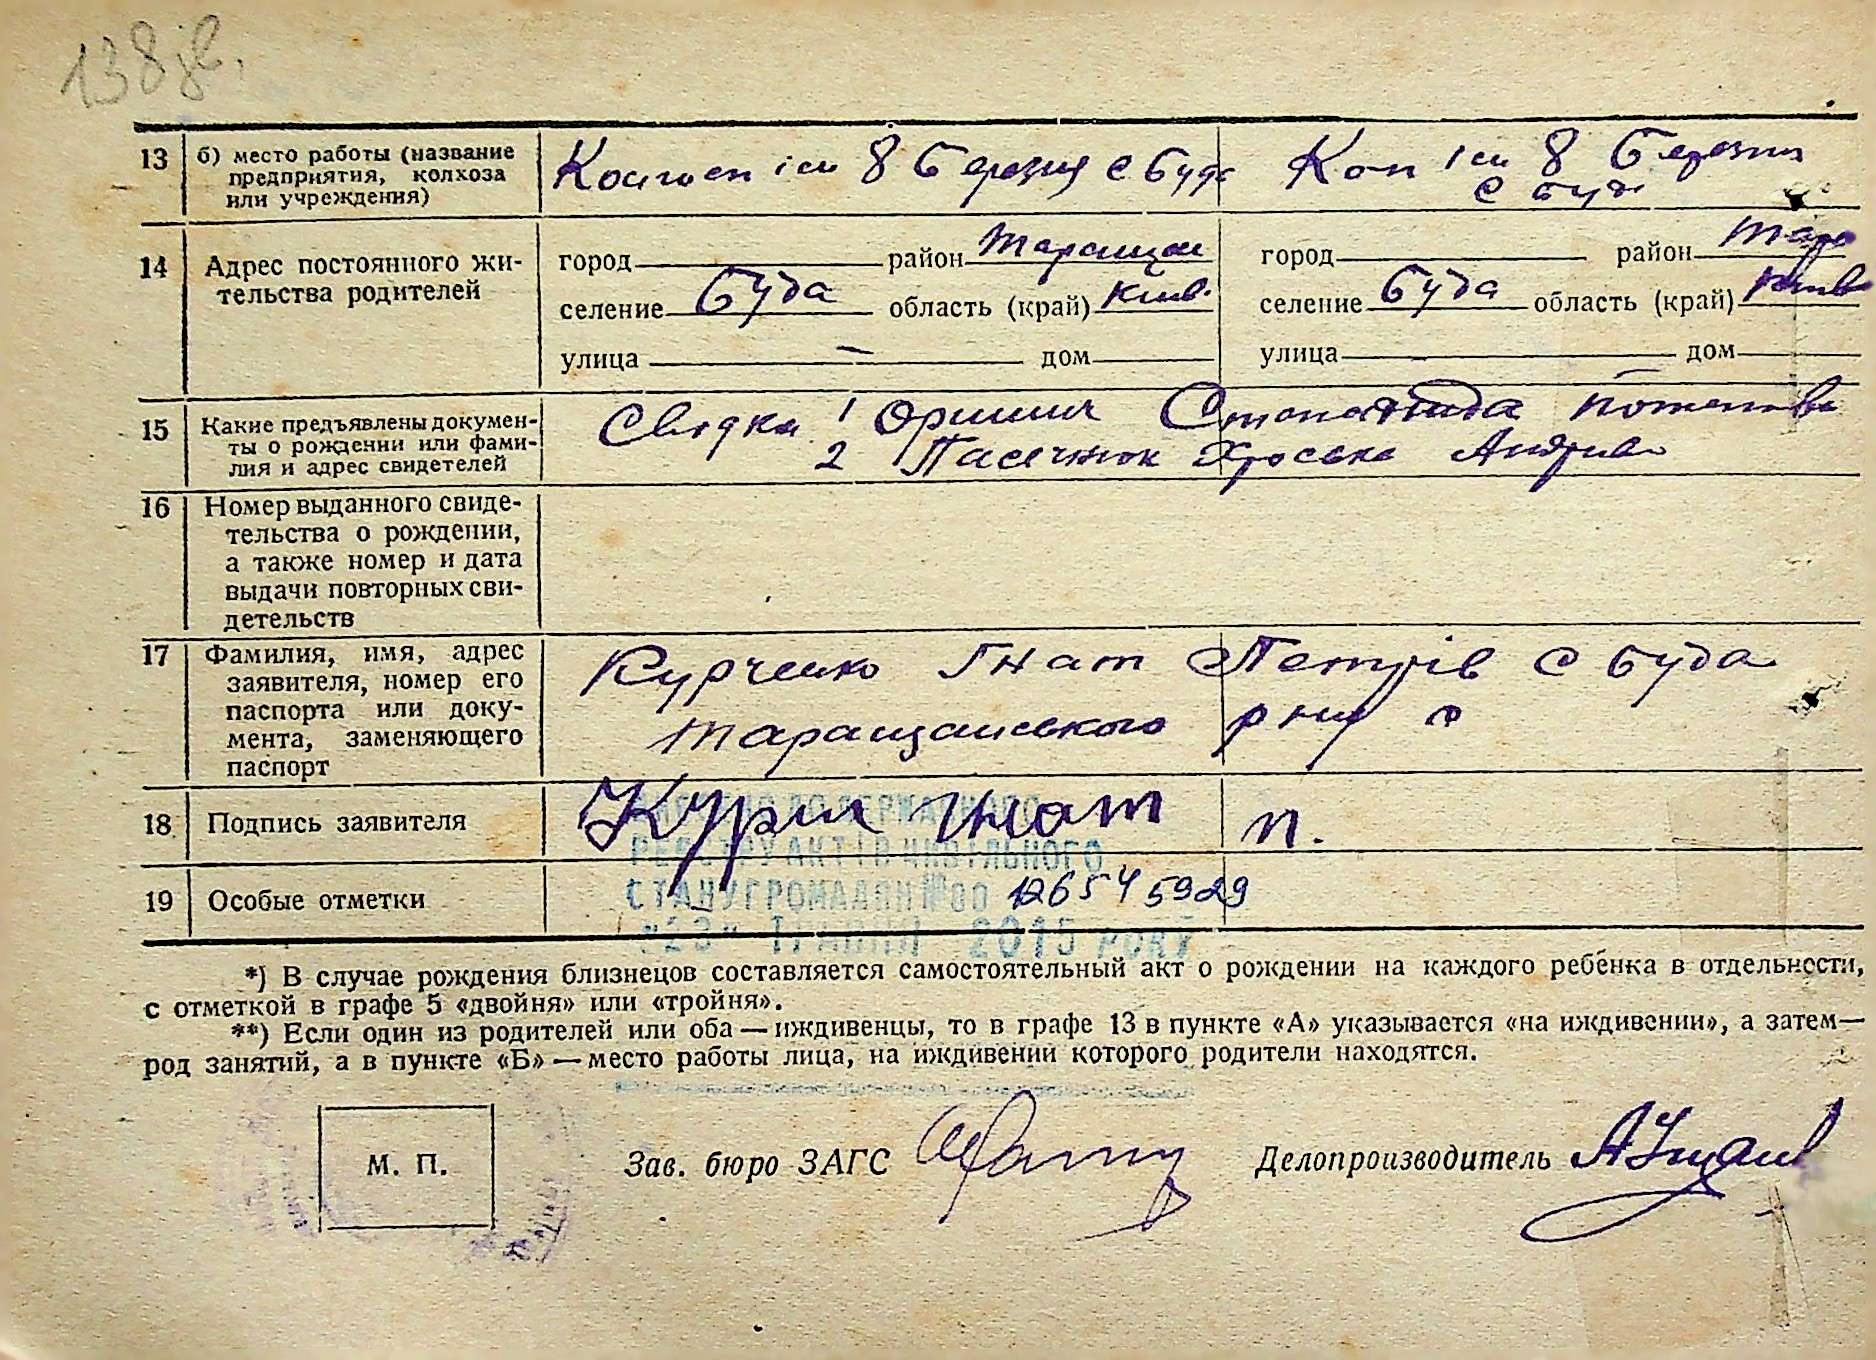 138
13 б) место работы (название предприятия, колхоза или учреждения)
ім 8 Березня с Буда
ім 8 Березня
с Буда
14 Адрес постоянного жительства родителей
город район Таращан
селение Буда область (край) Київ.
улица — дом
город район Тара
селение Буда область (край) Київ
улица дом
15 Какие предъявлены документы о рождении или фамилия и адрес свидетелей
Свідки 1
2 Пасечнюк Хроська Андріив
16 Номер выданного свидетельства о рождении, а также номер и дата выдачи повторных свидетельств
17 Фамилия, имя, адрес заявителя, номер его паспорта или документа, заменяющего паспорт
Курченко Гнат Петрів с Буда
Таращанського р ну
18 Подпись заявителя
Гнат П.
19 Особые отметки
ДЕРЖАВНОГО
РЕЄСТРУ АКТІВ ЦИВІЛЬНОГО
СТАНУ ГРОМАДЯН №00 126545929
"23" ТРАВНЯ 2015 РОКУ
*) В случае рождения близнецов составляется самостоятельный акт о рождении на каждого ребенка в отдельности,
с отметкой в графе 5 «двойня» или «тройня».
**) Если один из родителей или оба — иждивенцы, то в графе 13 в пункте «А» указывается «на иждивении», а затем —
род занятий, а в пункте «Б» — место работы лица, на иждивении которого родители находятся.
М. П.
Зав. бюро ЗАГС
Делопроизводитель